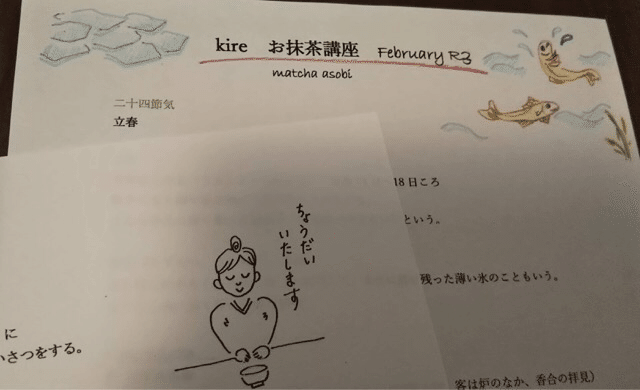 kire お抹茶講座 February R3
matcha asobi
二十四節気
立春
18日ころ
という。
残った薄い氷のこともいう。
客は炉のなか、香合の拝見)
ちょうだい
いたします
に
いさつをする。